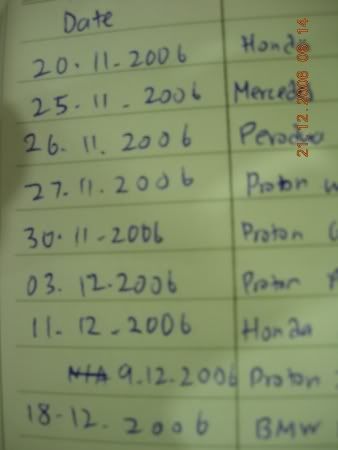 Date
20.11-2006 Honda
25.11-2006 Mercedes
26.11.2006 Perodua
27.11.2006 Proton
30.11-2006 Proton
03.12.2006 Proton
11.12-2006 Honda
N/A 9.12.2006 Proton
18-12.2006 BMW